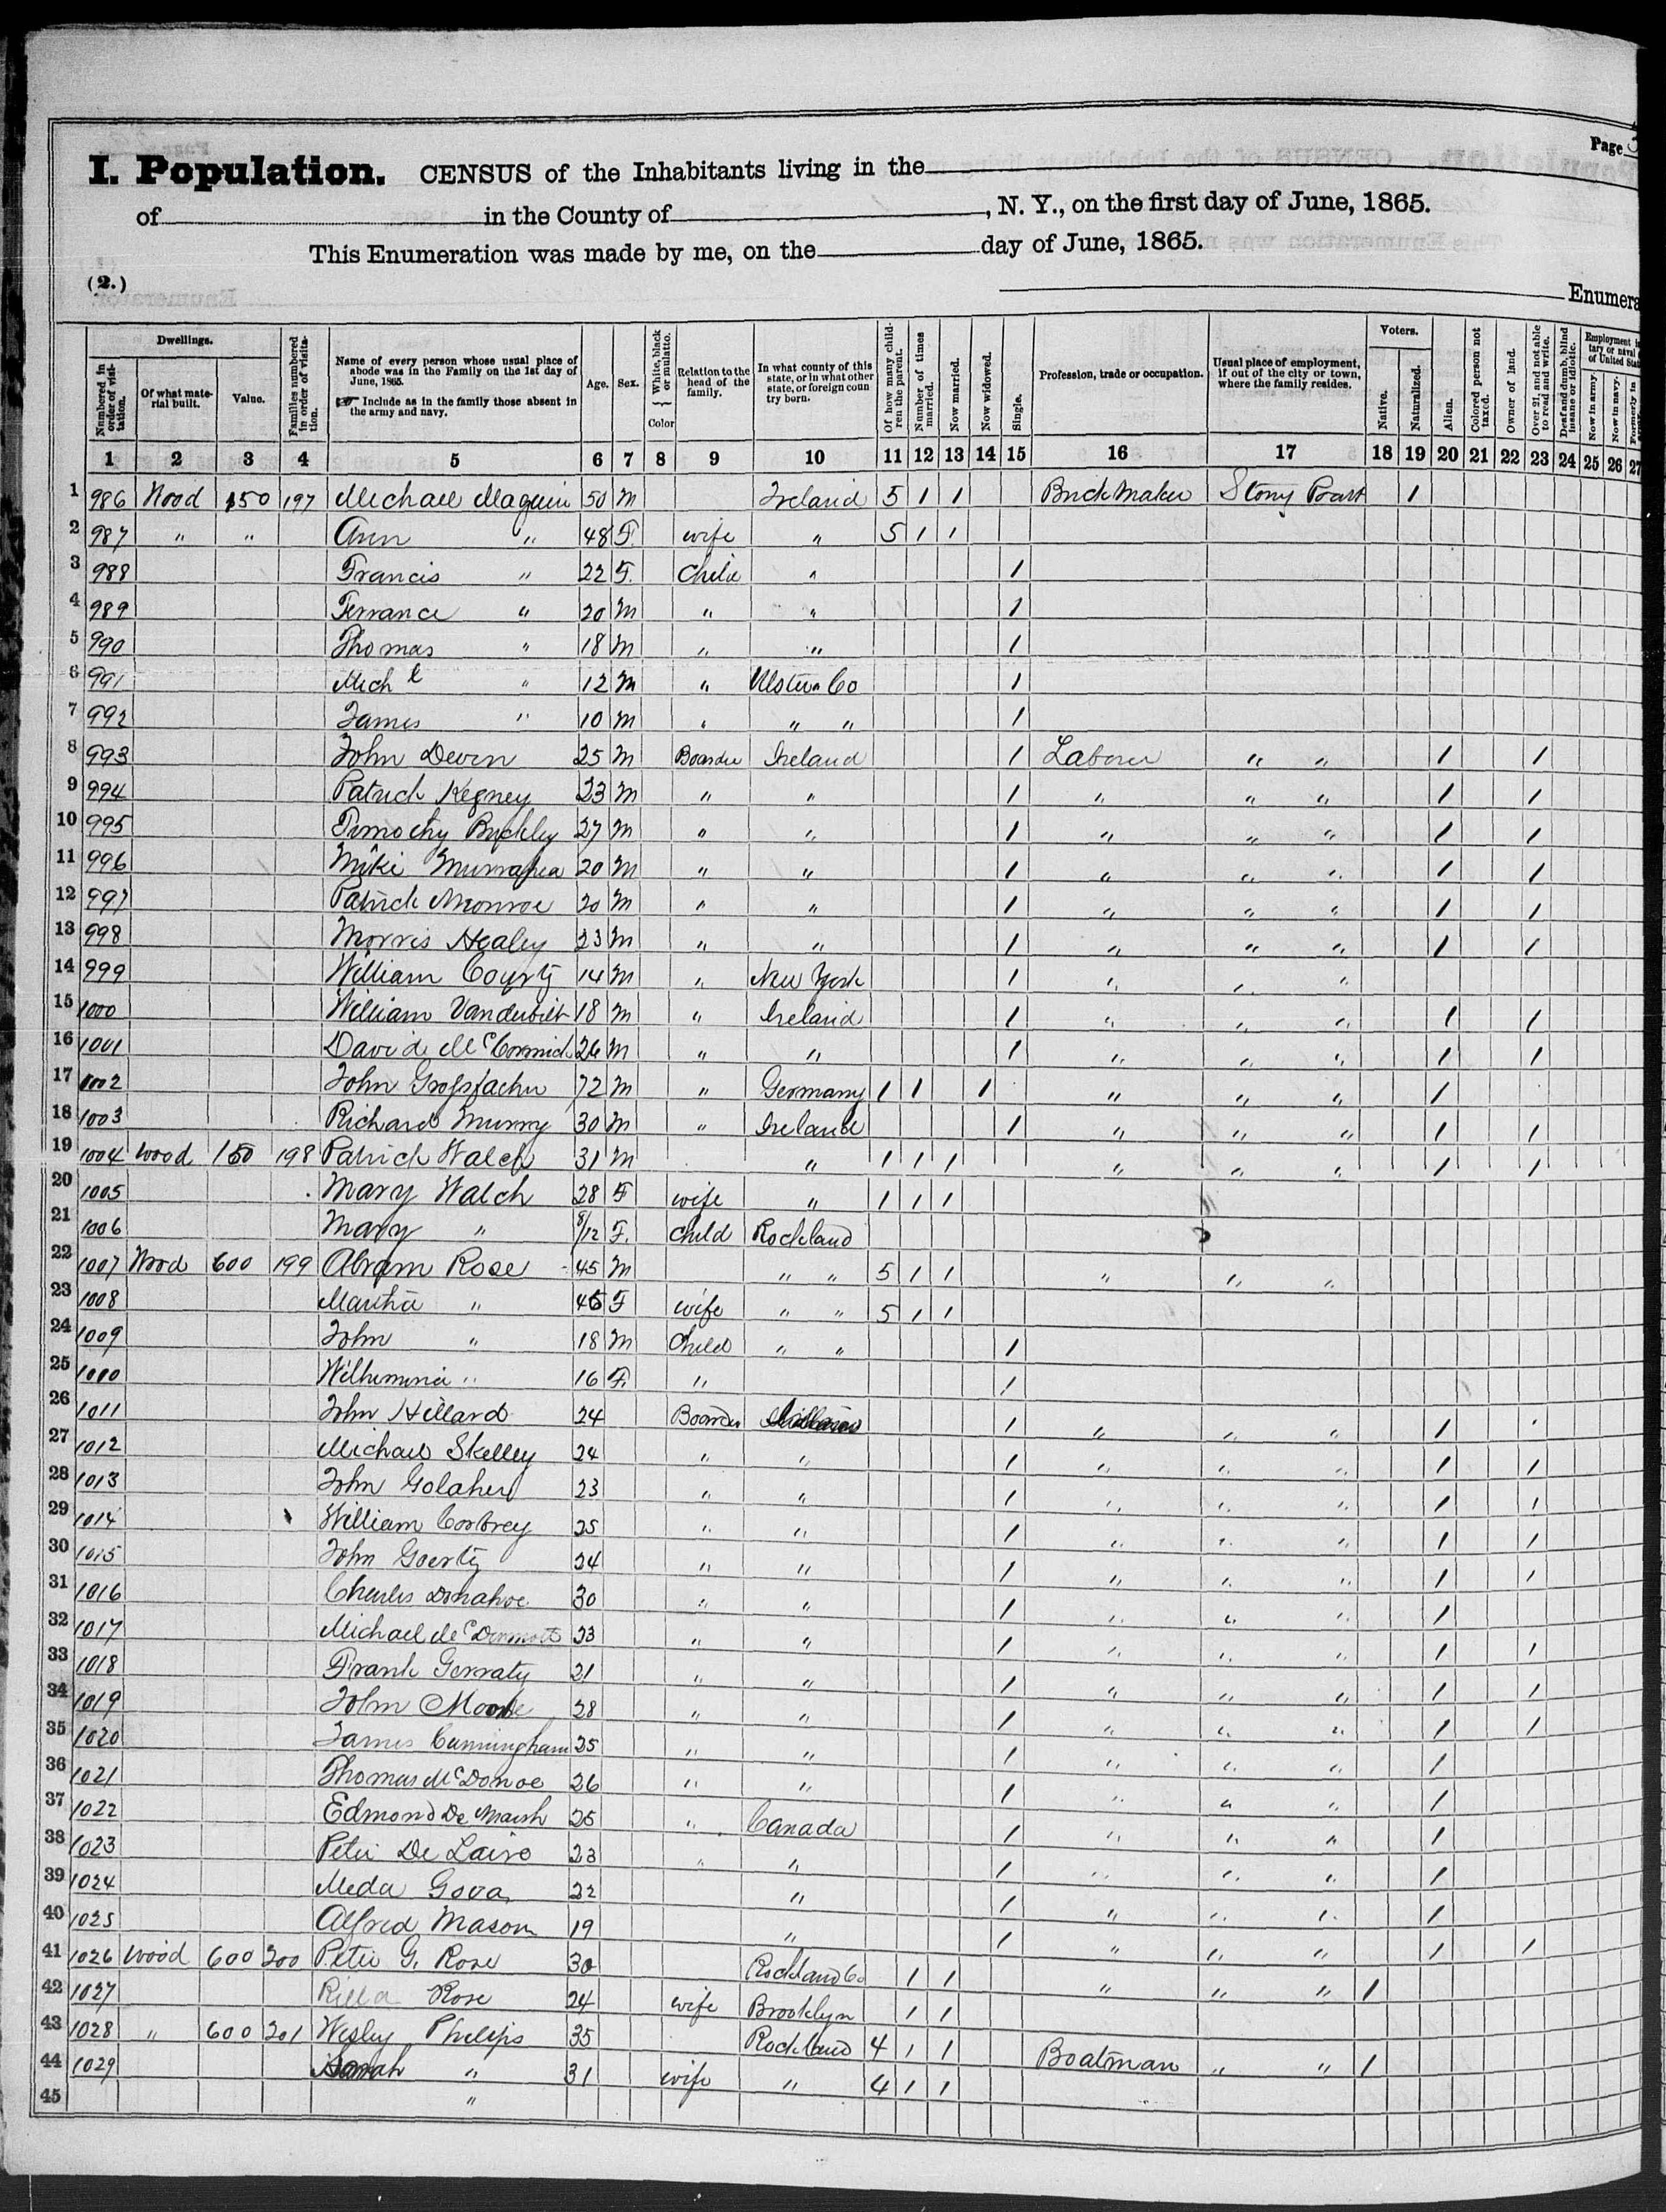 Page
I. Population. CENSUS of the Inhabitants living in the
of in the County of , N. Y., on the first day of June, 1865.
This Enumeration was made by me, on the day of June, 1865.
(2.)
Enumera
Numbered in order of visitation.
Dwellings.
Of what material built.
Value.
Families numbered in order of visitation.
Name of every person whose usual place of abode was in the Family on the 1st day of June, 1865.
☞ Include as in the family those absent in the army and navy.
Age.
Sex.
White, black or mulatto. } Color
Relation to the head of the family.
In what county of this state, or in what other state, or foreign coun try born.
Of how many children the parent.
Number of times married.
Now married.
Now widowed.
Single.
Profession, trade or occupation.
Usual place of employment, if out of the city or town, where the family resides.
Voters.
Native.
Naturalized.
Alien.
Colored person not taxed.
Owner of land.
Over 21, and not able to read and write.
Deaf and dumb, blind insane or idiotic.
Employment
tary or naval
of United Stat
Now in army.
Now in navy.
Formerly in
1 2 3 4 5 6 7 8 9 10 11 12 13 14 15 16 17 18 19 20 21 22 23 24 25 26 27
1 986 Wood 150 197 Michael Maguire 50 M Ireland 5 1 1 Brick Maker Stony Point 1
2 987 " " Ann " 48 F. wife " 5 1 1
3 988 Francis " 22 F. Child " 1
4 989 Terrance " 20 M " " 1
5 990 Thomas " 18 M " " 1
6 991 Mich l " 12 M " Ulster Co 1
7 992 James " 10 M " " " 1
8 993 John Deven 25 M Boarder Ireland 1 Laborer " " 1 1
9 994 Patrick Kegney 23 M " " 1 " " " 1 1
10 995 Timothy Buckley 27 M " " 1 " " " 1 1
11 996 Mike 20 M " " 1 " " " 1 1
12 997 Patrick Monroe 20 M " " 1 " " " 1 1
13 998 Morris Healey 23 M " " 1 " " " 1 1
14 999 William 14 M " New York 1 " " "
15 1000 William Vanderbilt 18 M " Ireland 1 " " " 1 1
16 1001 David McCormick 26 M " " 1 " " " 1 1
17 1002 John 72 M " Germany 1 1 1 " " " 1
18 1003 Richard Murry 30 M " Ireland 1 " " " 1 1
19 1004 Wood 150 198 Patrick Walch 31 M " 1 1 1 " " " 1 1
20 1005 Mary Walch 28 F wife " 1 1 1
21 1006 Mary " 8/12 F. child Rockland
22 1007 Wood 600 199 Abram Rose 45 M " " 5 1 1 " " "
23 1008 Martha " 46 F wife " " 5 1 1
24 1009 John " 18 M Child " " 1
25 1010 Wilhemina " 16 F. " 1
26 1011 John Hillard 24 Boarder 1 " " " 1
27 1012 Michael Skelley 24 " " 1 " " " 1 1
28 1013 John Golaher 23 " " 1 " " " 1 1
29 1014 William Corbrey 25 " " 1 " " " 1 1
30 1015 John Goerty 24 " " 1 " " " 1 1
31 1016 Charles Donahoe 30 " " 1 " " " 1
32 1017 Michael McDermott 23 " " 1 " " " 1 1
33 1018 Frank Gerraty 21 " " 1 " " " 1 1
34 1019 John Moore 28 " " 1 " " " 1 1
35 1020 James Cunningham 25 " " 1 " " " 1
36 1021 Thomas McDonoe 26 " " 1 " " " 1
37 1022 Edmond De Marsh 25 " Canada 1 " " " 1
38 1023 Peter De Lairo 23 " " 1 " " " 1
39 1024 Meda Gova 22 " 1 " " " 1
40 1025 Alfred Mason 19 " 1 " " " 1 1
41 1026 Wood 600 200 Peter G. Rose 30 Rockland Co 1 1 " " " 1
42 1027 Rilla Rose 24 wife Brooklyn 1 1
43 1028 " 600 201 Wesley Phelips 35 Rockland 4 1 1 Boatman " " 1
44 1029 Sarah " 31 wife " 4 1 1
45 "